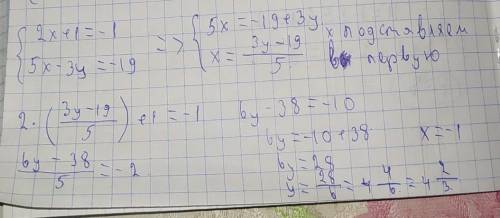 { 2x+1=-1
5x-3y=-19
=>
{ 5x=-19+3y
x=\frac{3y-19}{5}
x подставляем
в первую
2·(\frac{3y-19}{5})+1=-1
\frac{6y-38}{5}=-2
6y-38=-10
6y=-10+38
6y=28
y=\frac{28}{6}=4\frac{4}{6}=4\frac{2}{3}
x=-1